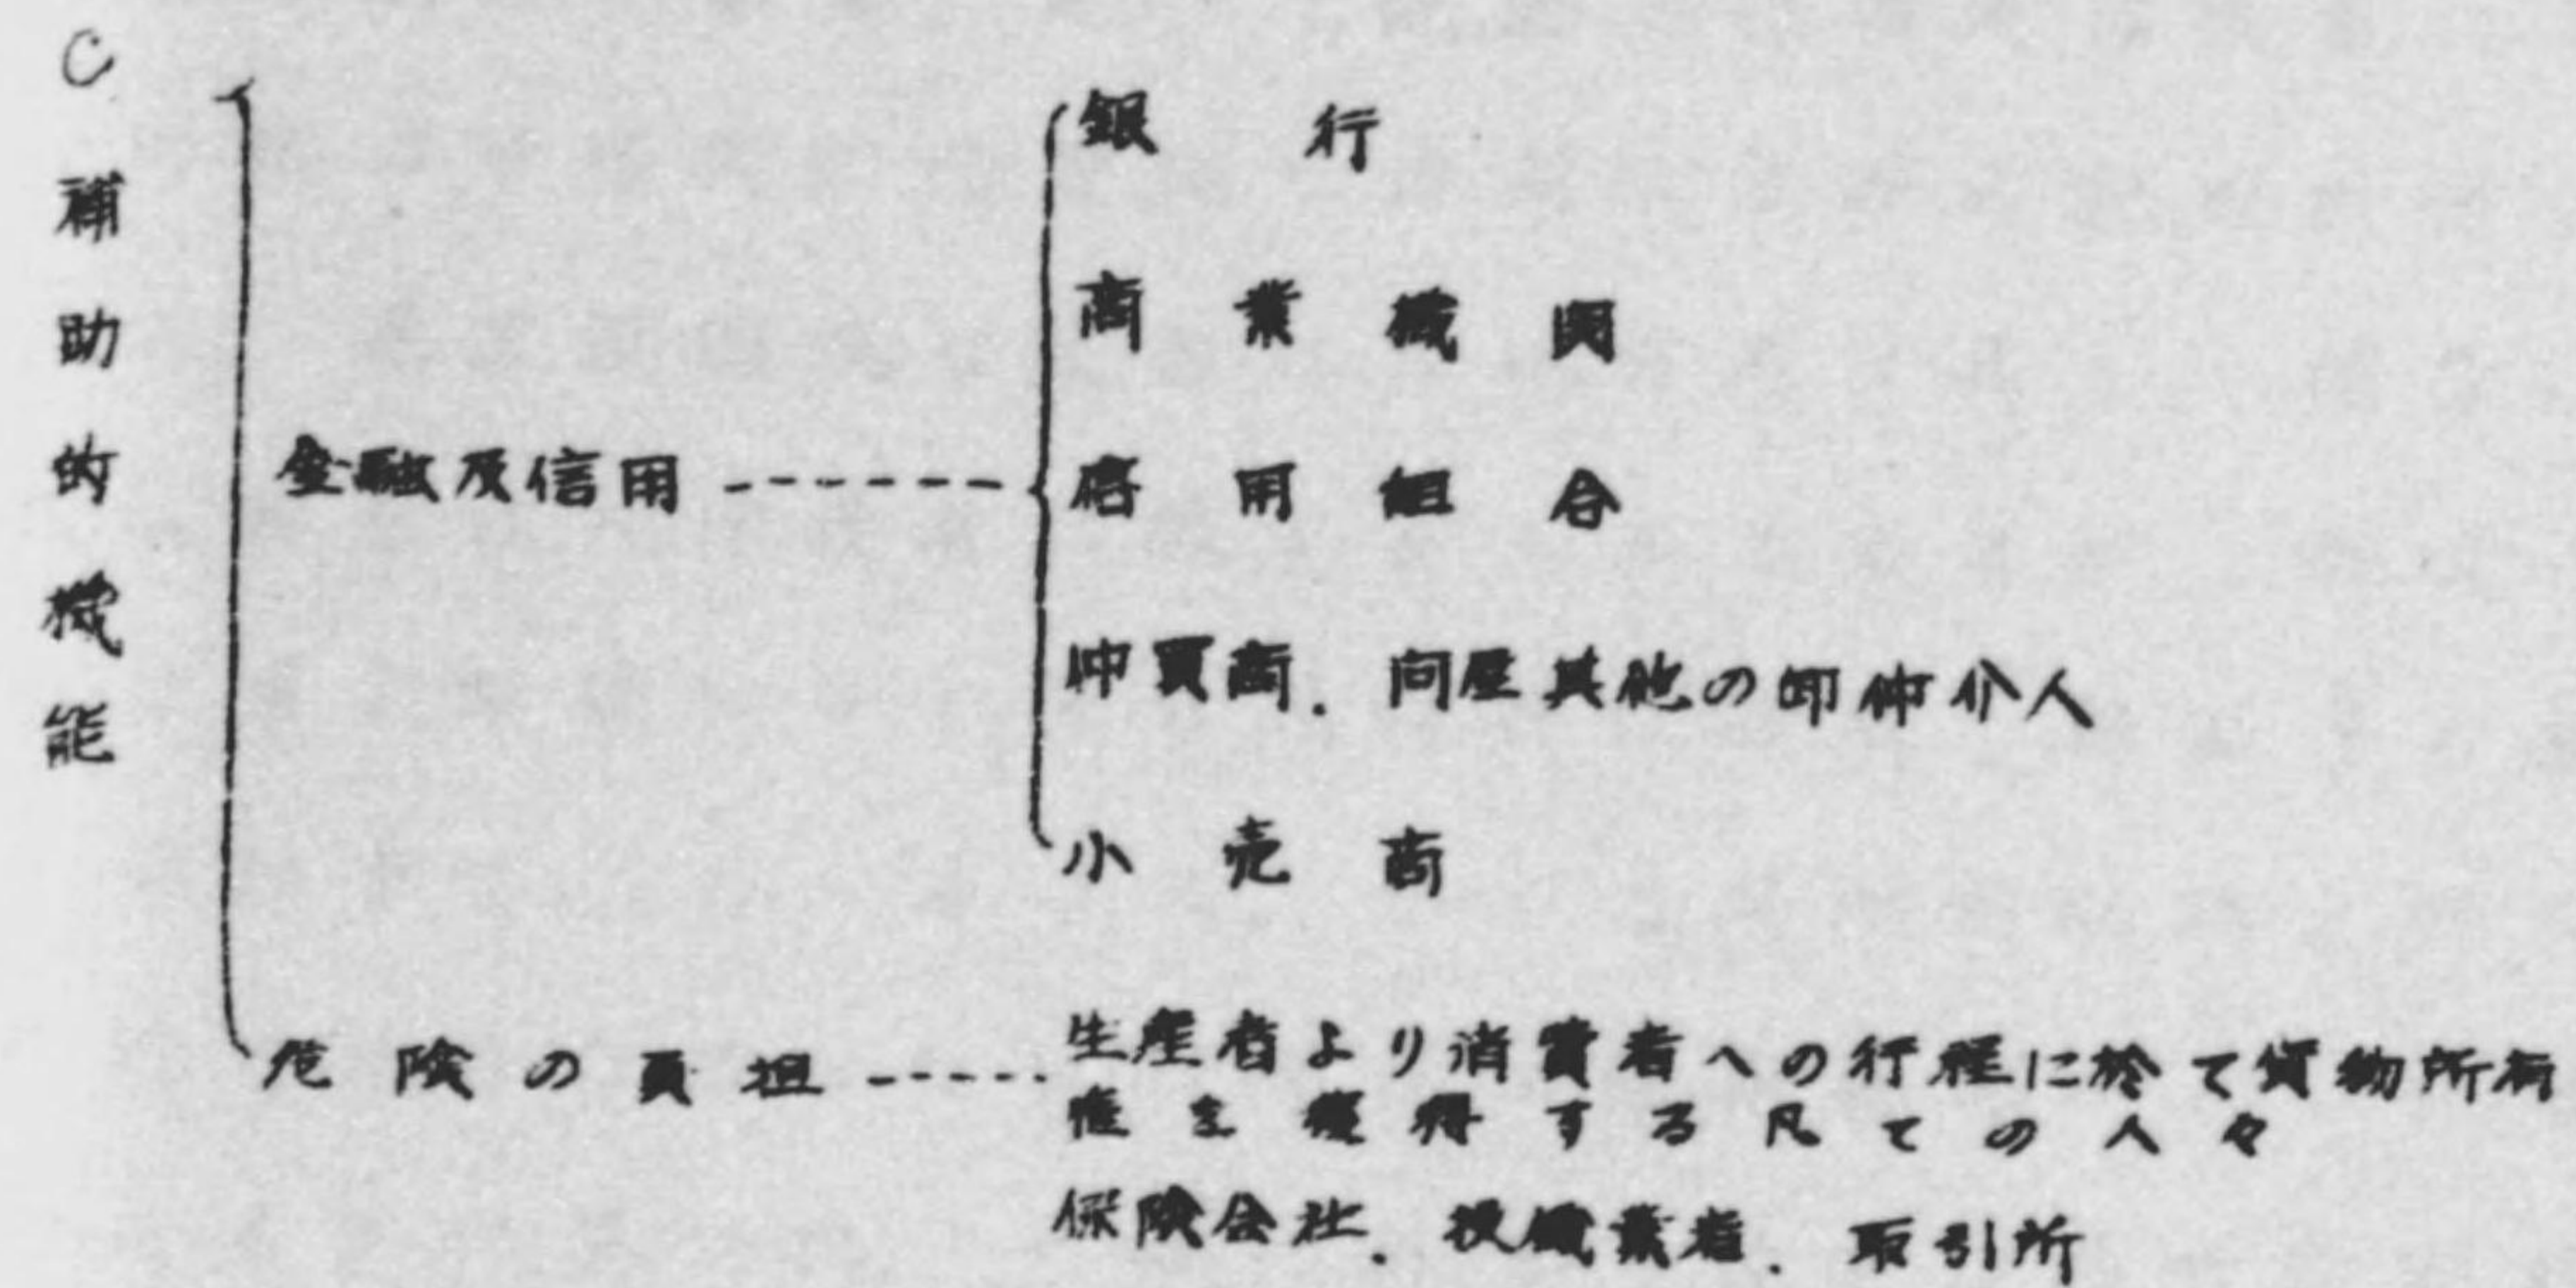 C 補助的機能
金融及信用
銀行
商業機関
信用組合
仲買商．问屋其他の卸仲介人
小売商
危険の負担
生産者より消費者への行程に於て貨物所有
権を獲得する凡ての人々
保険会社．投機業者．取引所